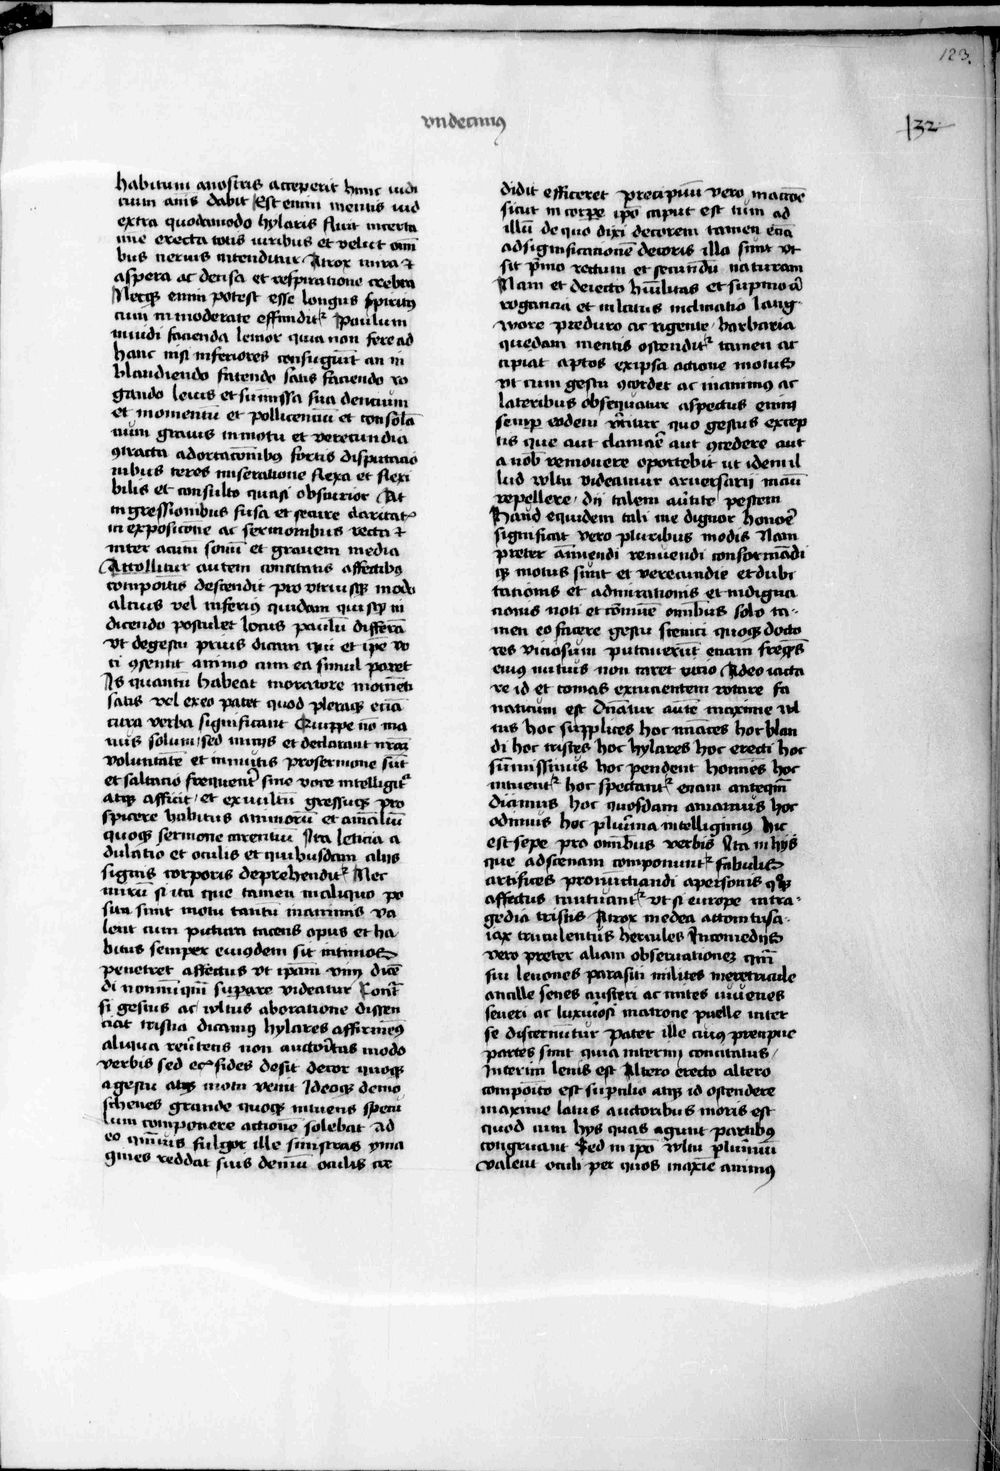 123.
vndecimus
132
habitum anostris acceperit hunc iudi
cium aīs dabit Est enim mentis iud
extra quodammodo hylaris fluit incerta
me erecta totis viribus et velut om̄
bus neruis intenditur Atrox in ira et
aspera ac densa et respiratione crebra
Necqꝫ enim potest esse longus spiritus
cum in moderate effunditᷣ Paulum
inuidi facienda lenior quia non fere ad
hanc nisi inferiores confugiūt an in
blandiendo fatendo satis faciendo ro
gando leuis et sūmissa sua dentium
et momentū et pollicentiū et consolā
tium grauis in motu et verecundia
9tracta adortacōnibꝰ fortis disputacio
nibus teres miseratione flexa et flexi
bilis et consulto quasi obscurior At
in gressionibus fusa et secure claritatꝭ
in exposicōne ac sermonibus recta et
inter acutū sonū et grauem media
Attollitur autem concitatis affectibꝰ
compōitis descendit pro vtriusqꝫ modo
altius vel inferiꝰ quidam quisqꝫ in
dicendo postulet locus paulū differā
vt degestu prius dicam qui et ip̄e vo
ci 9sentit animo cum ea simul paret
Is quantū habeat moratore momēti
satis vel exeo patet quod pleraqꝫ eciā
citra verba significant Quippe nō ma
nus solum sed nutꝰ et declarant nr̄am
voluntatē et in mutis prosermone sūt
et saltatio frequentᷣ sine voce intelligitᷣ
atqꝫ afficit et exvultu gressuqꝫ pro
spicere habitus animorū et aīaliū
quoqꝫ sermone carentiū Ita leticia a
dulatio et oculis et quibusdam alijs
signis corporis deprehenditᷣ Nec
mirū si ita que tamen inaliquo po
sita sunt motu tantū inanimis va
lent cum pictura tacens opus et ha
bitus semper eiusdem sit intimos
penetret affectus vt ip̄am vim dicē
di nonnūqm̄ suꝑare videatur Contᷓ
si gestus ac vltus aboratione dissen
ciat tristia dicamꝰ hylares affirmēꝰ
aliqua renūtens non auctōritas modo
verbis sed eciā fides desit decor quoqꝫ
agestu atqꝫ motu venit Ideoqꝫ demo
sthenes grande quoqꝫ intuens specu
lum componere actionē solebat ad
eo qm̄uis fulgor ille sinistras yma
gines reddat suis demū oculis cre
didit efficeret precipuū vero inactōe
sicut in corpe ipō caput est tum ad
illū de quo dixi decorem tamen eciā
adsignificationē decoris illa sunt vt
sit pͥmo rectum et secundū naturam
Nam et deiecto hūilitas et supino ar
rogancia et inlatus inclinatio lang
wore preduro ac rigente barbaria
quedam mentis ostenditᷣ tamen ac
cipiat aptos exipsa actione motus
vt cum gestu 9cordet ac manimꝰ ac
lateribus obsequatur aspectus enim
semp eodem v̄titur quo gestus excep
tis que aut damnāē aut 9cedere aut
a nob̄ remouere oportebit ut idem il
lud vltu videamur aruersarij manū
repellere dij talem aūtite pestem
Haud equidem tali me dignor honoē
significat vero pluribus modis Nam
preter ānuendi renuendi confirmādi
qꝫ motus sunt et verecundie et dubi
tationis et admirationis et indigna
tionis noti et cōmūe omnibus solo ta-
men eo facere gestu scenici quoqꝫ docto
res viciosum putauerūt etiam freqꝫns
eius nutuus non caret vitio Adeo iacta
re id et comas excutientem rotare fa
naticum est Dn̄atur autē maxime vul
tus hoc supplices hoc minaces hoc blan
di hoc tristes hoc hylares hoc erecti hoc
sūmissimus hoc pendent homīes hoc
intuentᷣ hoc spectantᷣ etiam anteqm̄
dicamus hoc quosdam amamus hoc
odimus hoc plurīma intelligimꝰ hic
est sepe pro omnibus verbis Ita in hijs
que adscenam componuntᷣ fabulis
artifices pronūctiandi apersonis qꝫ
affectus mutuantᷣ vt si europe intra-
gedia tristis Atrox medea attonitusa-
iax truculentus hercules Incomedijs
vero preter aliam obseruationeꝫ qua
sui leuones parasiti milites meretricule
ancille senes austeri ac mites iuuenes
seueri ac luxuiosi matrone puelle inter
se discernūtur Pater ille cuius precipue
partes sunt quia interim concitatus
Interim lenis est Altero erecto altero
compōito est supcilio atqꝫ id ostendere
maxime latus auctoribus moris est
quod cum hijs quas agunt partibꝰ
congruant Sed in ipō vltu plurimū
valent oculi per quos maxīe animꝰ